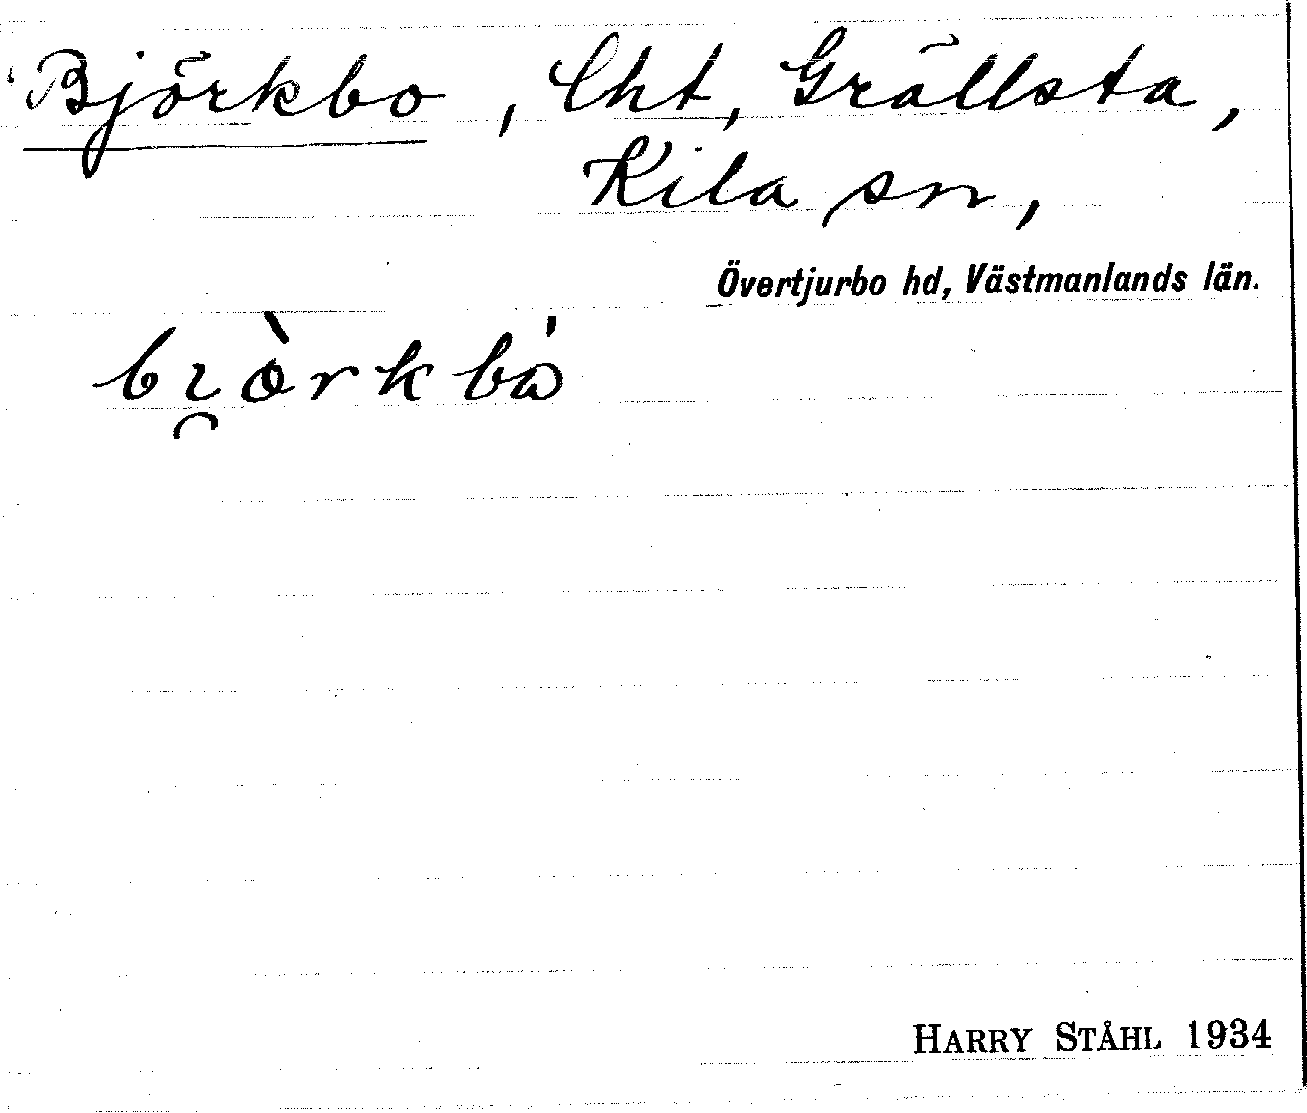 Björkbo, lht, Grällsta,
Kila sn,
Övertjurbo hd, Västmanlands län.
bi̯òrkbω̍
HARRY STÅHL 1934